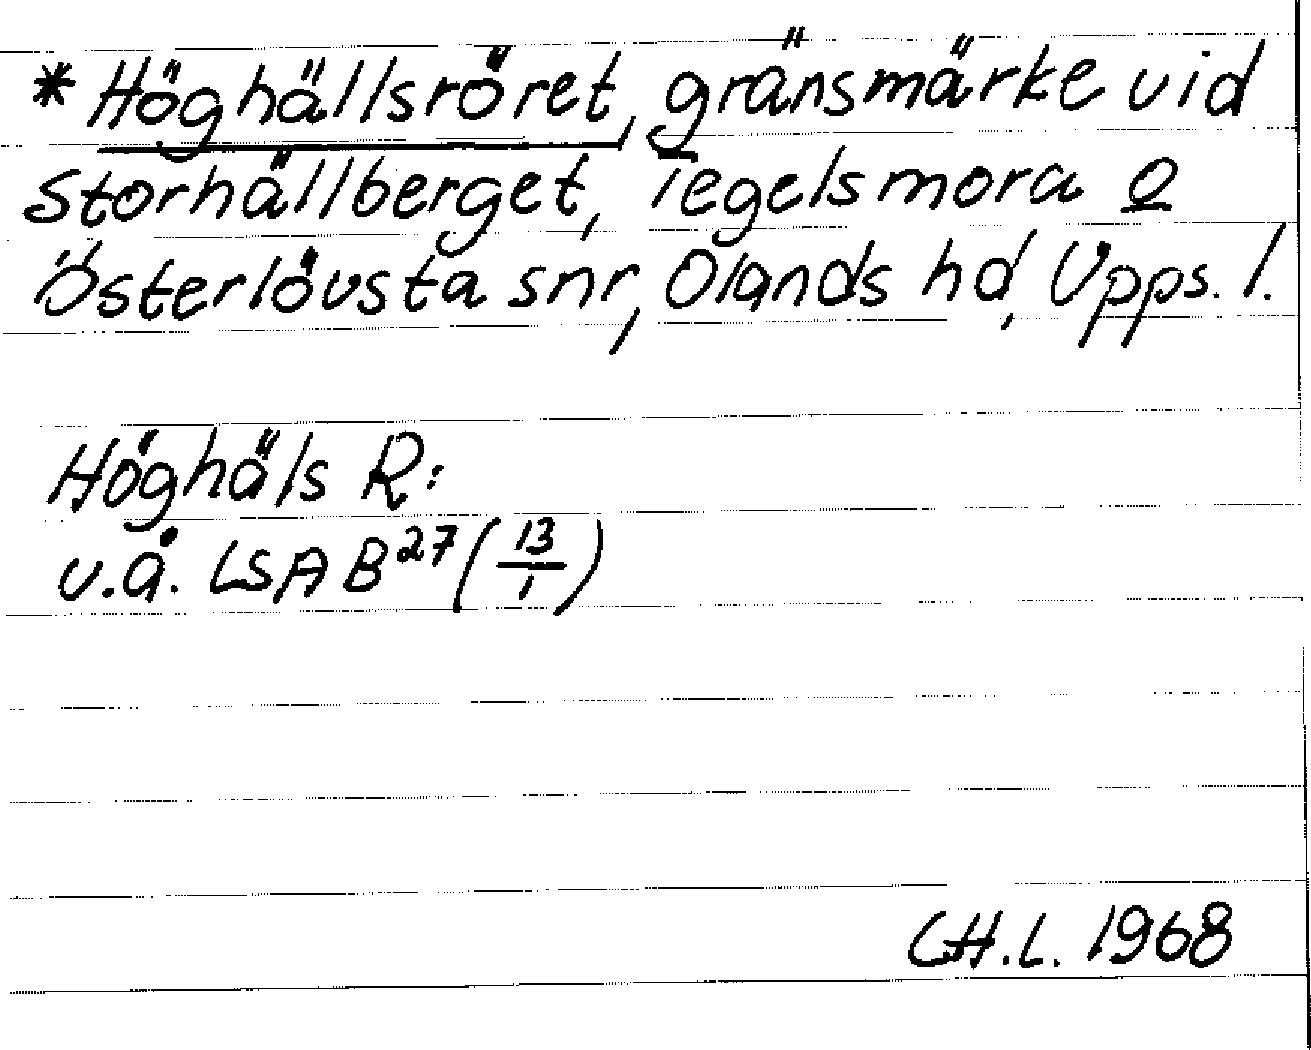 * Höghällsröret, gränsmärke vid
Storhällberget, Tegelsmora o
Österlövsta snr, Olands hd, Upps. l.
Höghäls R:
u.å. LSA B27 (13/1)
CH.L. 1968